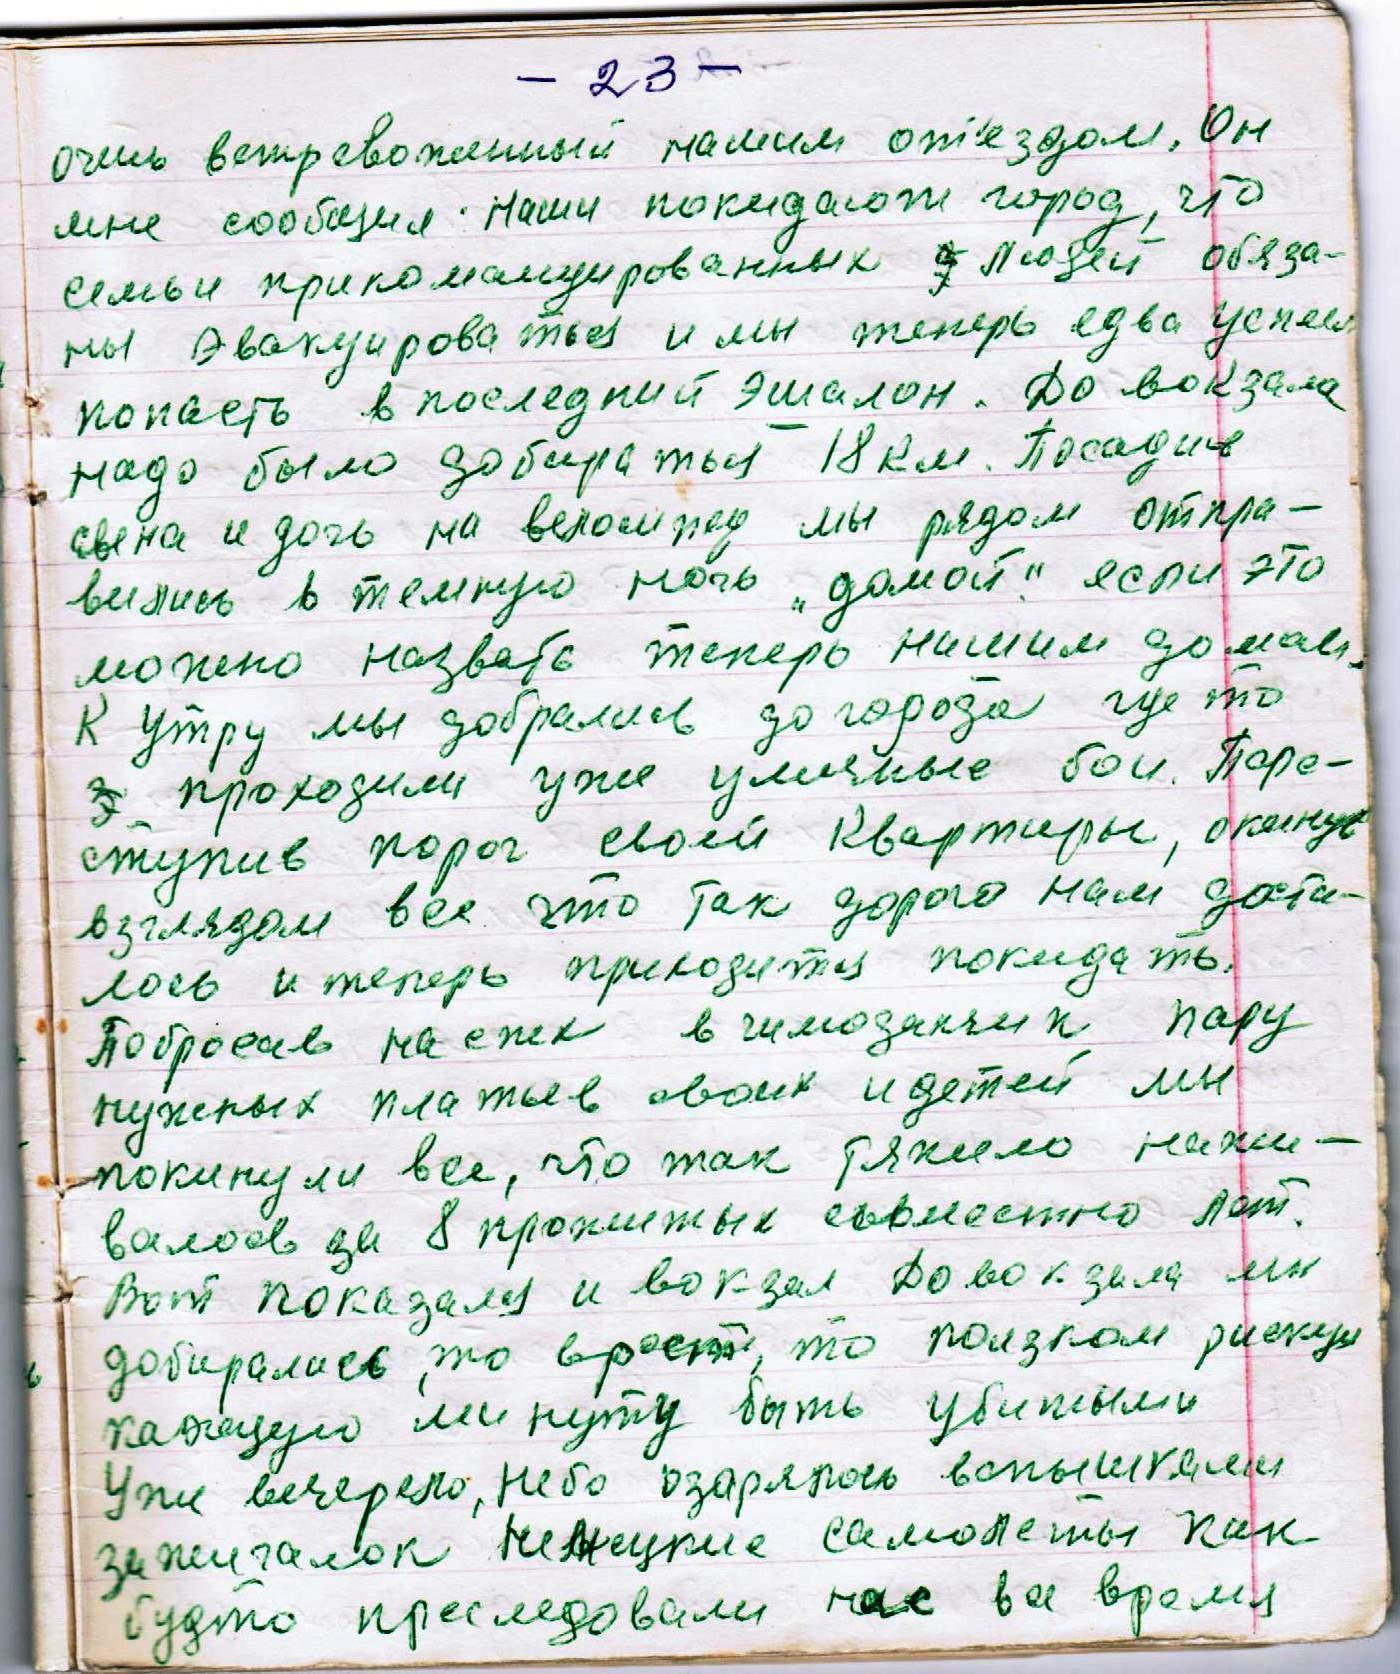 - 23 -
очень встревоженный нашим от'ездом. Он
мне сообщил: Наши покидают город, что
семьи прикомандированных людей обяза-
ны эвакуироваться и мы теперь едва успеем
попасть в последний эшалон. До вокзала
надо было добираться 18 км. Посадив
сына и дочь на велосипед мы рядом отпра-
вились в темную ночь „домой" если это
можно назвать теперь нашим домом.
К утру мы добрались до города где то
проходили уже уличные бои. Пере-
ступив порог своей квартиры, окинув
взглядом все что так дорого нам доста-
лось и теперь приходится покидать.
Побросав на спех в чимоданчик пару
нужных платьев своих и детей мы
покинули все, что так тяжело нажи-
валось за 8 прожитых совместно лет.
Вот показался и вокзал До вокзала мы
добирались, то в рост, то ползком рискуя
каждую минуту быть убитыми
Уже вечерело, небо озарялось вспышками
зажигалок Немецкие самолеты как
будто преследовали нас все время